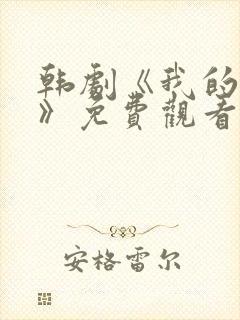 韩剧《我的
》免費觀看
安格雷尔